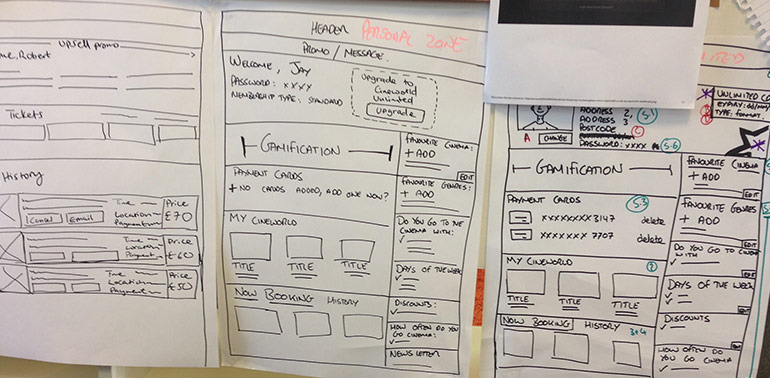 upsell promo
me, Robert
Tickets
History
Time
Location
Payment
Price
£70
Cancel
Email
Time
Location
Payment
Price
£60
Time
Location
Payment
Price
£50
HEADER PERSONAL ZONE
PROMO / MESSAGE.
WELCOME, JAY
PASSWORD: XXXX
MEMBERSHIP TYPE: STANDARD
upgrade to
Cineworld
Unlimited
upgrade
GAMIFICATION
FAVOURITE CINEMA:
+ ADD
EDIT
PAYMENT CARDS
+ NO CARDS ADDED, ADD ONE NOW?
FAVOURITE GENRES:
+ ADD
MY CINEWORLD
TITLE TITLE TITLE
DO YOU GO TO THE
CINEMA WITH:
DAYS OF THE WEEK
NOW BOOKING HISTORY
DISCOUNTS:
HOW OFTEN DO YOU
GO CINEMA:
NEWSLETTER
ADDRESS 2,
ADDRESS 3
POSTCODE
A CHANGE
PASSWORD: XXXX
5.6
UNLIMITED
EXPIRY: dd/mm/
TYPE: FORMAT.
GAMIFICATION
FAVOURITE CINEMA
+ ADD
EDIT
PAYMENT CARDS 5.3
XXXXXXXX 3147 delete
XXXXXXXX 7707 delete
FAVOURITE GENRES
+ ADD
EDIT
MY CINEWORLD
TITLE TITLE TITLE
DO YOU GO TO CINEMA
WITH
DAYS OF THE WEEK
NOW BOOKING HISTORY 3+4
DISCOUNTS
EDIT
HOW OFTEN DO
YOU GO CINEMA